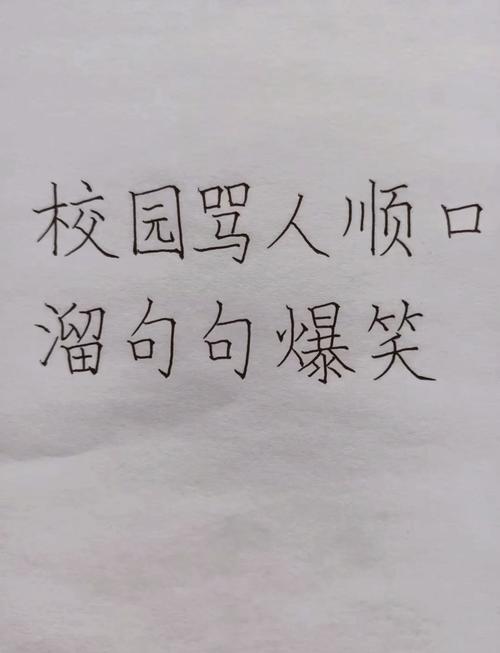 校园骂人顺口
溜句句爆笑